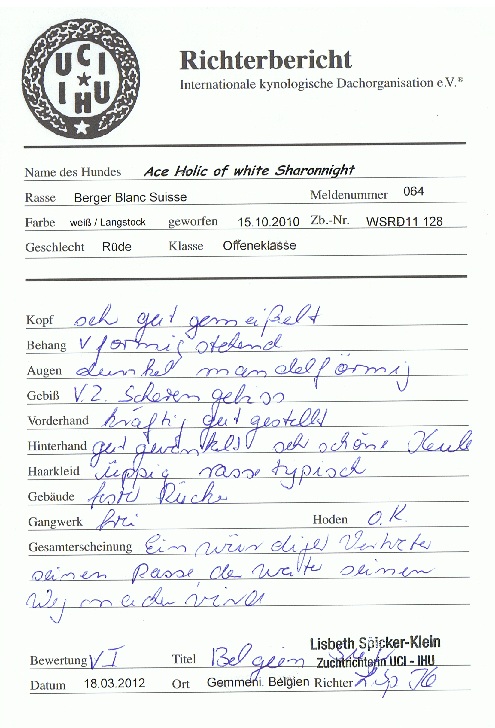 UCI
IHU
Richterbericht
Internationale kynologische Dachorganisation e.V.®
Name des Hundes Ace Holic of white Sharonnight
Rasse Berger Blanc Suisse Meldenummer 064
Farbe weiß / Langstock geworfen 15.10.2010 Zb.-Nr. WSRD11 128
Geschlecht Rüde Klasse Offeneklasse
Kopf seh gut gemeißelt
Behang V förmig stehend
Augen dunkel mandelförmig
Gebiß V.Z. Scherengebiss
Vorderhand kräftig gut gestellt
Hinterhand gut gewinkelt seh schöne Keule
Haarkleid üppig rassetypisch
Gebäude feste Rücke
Gangwerk frei Hoden O.K.
Gesamterscheinung Ein würdiger Vertreter
seinen Rasse, de weite seinen
Weg machen wird
Lisbeth Spicker-Klein
Bewertung VI Titel Belgien Zuchtrichterin UCI - IHU
Datum 18.03.2012 Ort Gemmeni. Belgien Richter